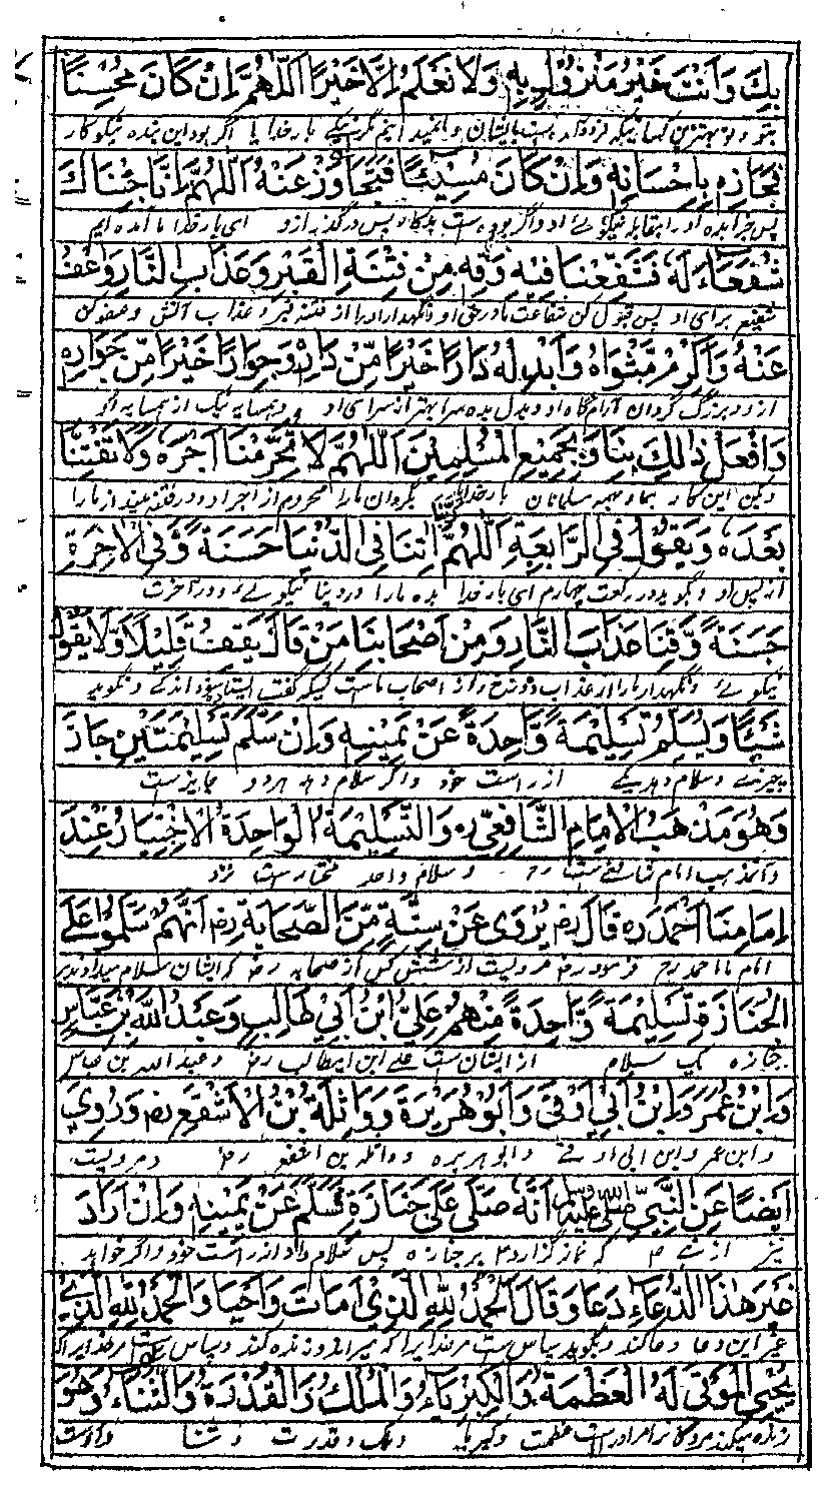 بِكَ وَاَنْتَ خَيْرُ مَنْزُوْلٍ بِهٖ وَلَا نَعْلَمُ اِلَّا خَيْرًا اَللّٰهُمَّ اِنْ كَانَ مُحْسِنًا
بتو و تو بهترین فرود بایشان و نمیدانیم مگر نیکی بار خدایا اگر بود این بنده نیکوکار
فَجَازِهٖ بِاِحْسَانِهٖ وَاِنْ كَانَ مُسِيْئًا فَتَجَاوَزْ عَنْهُ اَللّٰهُمَّ اِنَّا جِئْنَاكَ
پس جزا بده او را بمقابله نیکوئی او و اگر بوده است بدکار پس درگذر از و ای بار خدا ما آمده ایم
شُفَعَاءَ لَهٗ فَشَفِّعْنَا فِيْهِ وَقِهٖ مِنْ فِتْنَةِ الْقَبْرِ وَعَذَابِ النَّارِ وَاعْفُ
شفیع برای او پس قبول کن شفاعت ما در حق او و نگهدار او را از فتنه قبر و عذاب آتش و عفو کن
عَنْهُ وَاَكْرِمْ مَّثْوَاهُ وَاَبْدِلْهُ دَارًا خَيْرًا مِّنْ دَارِهٖ وَجِوَارًا خَيْرًا مِّنْ جِوَارِهٖ
از و و بزرگ گردان آرامگاه او و بدل بده سرا بهتر از سرای او و همسایه نیک از همسایه او
وَافْعَلْ ذٰلِكَ بِنَا وَبِجَمِيْعِ الْمُسْلِمِيْنَ اَللّٰهُمَّ لَا تَحْرِمْنَا اَجْرَهٗ وَلَا تَفْتِنَّا
و بکن این کار بما و همه مسلمانان بار خدایا مگردان ما را محروم از اجر او و در فتنه مینداز ما را
بَعْدَهٗ وَيَقُوْلُ فِي الرَّابِعَةِ اَللّٰهُمَّ رَبَّنَا اٰتِنَا فِي الدُّنْيَا حَسَنَةً وَّفِي الْاٰخِرَةِ
از پس او و بگوید در رکعت چهارم ای بار خدا بده ما را در دنیا نیکوئی و در آخرت
حَسَنَةً وَّقِنَا عَذَابَ النَّارِ وَمِنْ اَصْحَابِنَا مَنْ قَالَ يَقِفُ قَلِيْلًا وَّلَا يَقُوْلُ
نیکوئی و نگهدار ما را از عذاب دوزخ و از اصحاب ما است کسیکه گفت ایستاده شود اندکی و نگوید
شَيْئًا وَّيُسَلِّمُ تَسْلِيْمَةً وَّاحِدَةً عَنْ يَمِيْنِهٖ وَاِنْ سَلَّمَ تَسْلِيْمَتَيْنِ جَازَ
چیزی و سلام دهد یک از راست خود و اگر سلام دهد هر دو جایز ست
وَهُوَ مَذْهَبُ الْاِمَامِ الشَّافِعِيِّ رہ وَالتَّسْلِيْمَةُ الْوَاحِدَةُ الْاِخْتِيَارُ عِنْدَ
و آن مذهب امام شافعی ست رح و سلام واحد مختار ست نزد
اِمَامِنَا اَحْمَدَ رہ قَالَ رض يُرْوٰى عَنْ سِتَّةٍ مِّنَ الصَّحَابَةِ رض اَنَّهُمْ سَلَّمُوْا عَلَى
امام ما احمد رح فرمود رض مرویست از شش کس از صحابه رض که ایشان سلام میدادند بر
الْجَنَازَةِ تَسْلِيْمَةً وَّاحِدَةً مِّنْهُمْ عَلِيُّ ابْنُ اَبِيْ طَالِبٍ وَعَبْدُ اللّٰهِ بْنُ عَبَّاسٍ
جنازه یک سلام از ایشان ست علی ابن ابیطالب رض و عبد الله بن عباس
وَابْنُ عُمَرَ وَابْنُ اَبِيْ اَوْفٰى وَاَبُوْ هُرَيْرَةَ وَوَاثِلَةُ بْنُ الْاَسْقَعِ رض وَرُوِيَ
و ابن عمر و ابن ابی اوفی و ابو هریره و واثله بن اسقع رض و مرویست
اَيْضًا عَنِ النَّبِيِّ صَلَّى اللّٰهُ عَلَيْهِ وَسَلَّمَ اَنَّهٗ صَلّٰى عَلٰى جَنَازَةٍ فَسَلَّمَ عَنْ يَمِيْنِهٖ وَاِنْ اَرَادَ
نیز از نبی ص که نماز گزارد بر جنازه پس سلام داد از راست خود و اگر خواهد
غَيْرَ هٰذَا الدُّعَاءِ دَعَا وَقَالَ اَلْحَمْدُ لِلّٰهِ الَّذِيْ اَمَاتَ وَاَحْيَا وَالْحَمْدُ لِلّٰهِ الَّذِيْ
غیر این دعا دعا کند و بگوید سپاس ست مر خدایرا که میراند و زنده کند و سپاس ست مر خدایرا که
يُحْيِي الْمَوْتٰى لَهُ الْعَظَمَةُ وَالْكِبْرِيَاءُ وَالْمُلْكُ وَالْقُدْرَةُ وَالثَّنَاءُ وَهُوَ
زنده میکند مردگان را مر او راست عظمت و کبریا و ملک و قدرت و ثنا و اوست